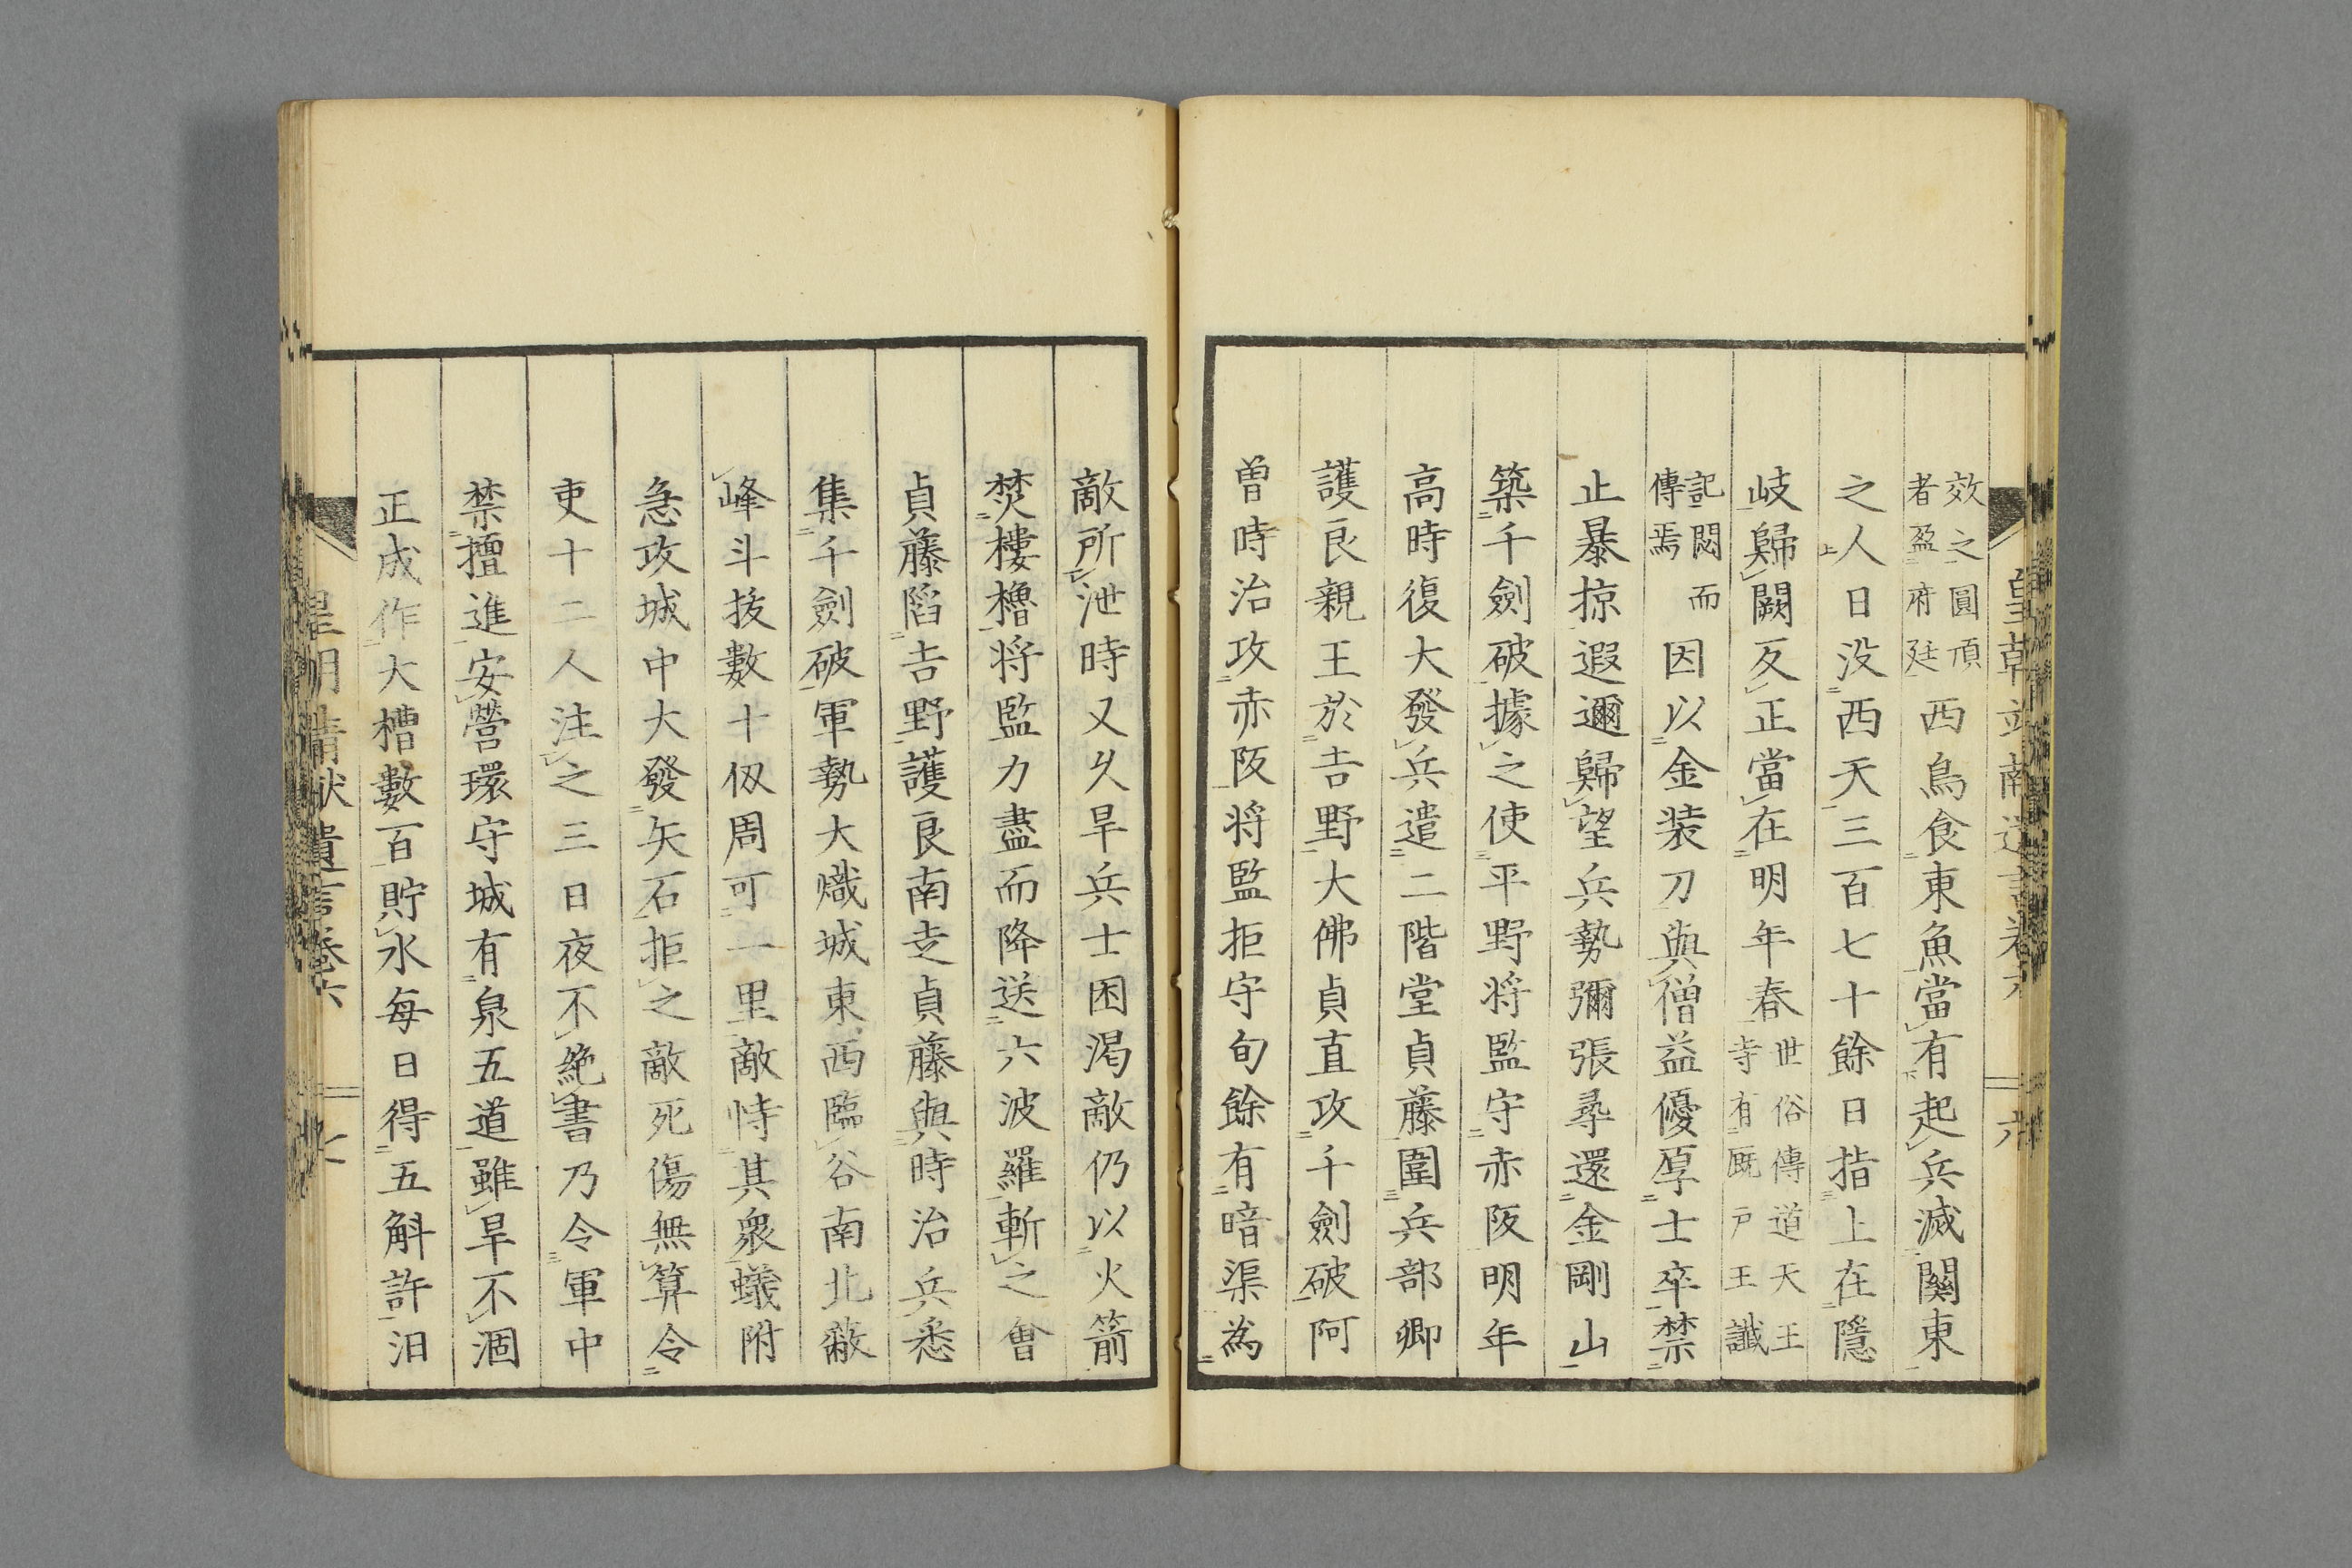 效之圓頂
者盈府廷
西鳥食東魚當有起兵滅關東
之人日没西天三百七十餘日指上在隱
岐歸闕反正當在明年春
世俗傳道天王
寺有厩戸王讖
記閟而
傳焉
因以金装刀與僧益優厚士卒禁
止暴掠遐邇歸望兵勢彌張尋還金剛山
築千劍破據之使平野将監守赤阪明年
高時復大發兵遣二階堂貞藤圍兵部卿
護良親王於吉野大佛貞直攻千劍破阿
曽時治攻赤阪将監拒守旬餘有暗渠為
敵所泄時又久旱兵士困渇敵仍以火箭
焚樓櫓将監力盡而降送六波羅斬之會
貞藤陷吉野護良南走貞藤與時治兵悉
集千劍破軍勢大熾城東西臨谷南北敝
峰斗抜數十仭周可一里敵恃其衆蟻附
急攻城中大發矢石拒之敵死傷無算令
吏十二人注之三日夜不絶書乃令軍中
禁擅進安營環守城有泉五道雖旱不涸
正成作大槽數百貯水毎日得五斛許汨